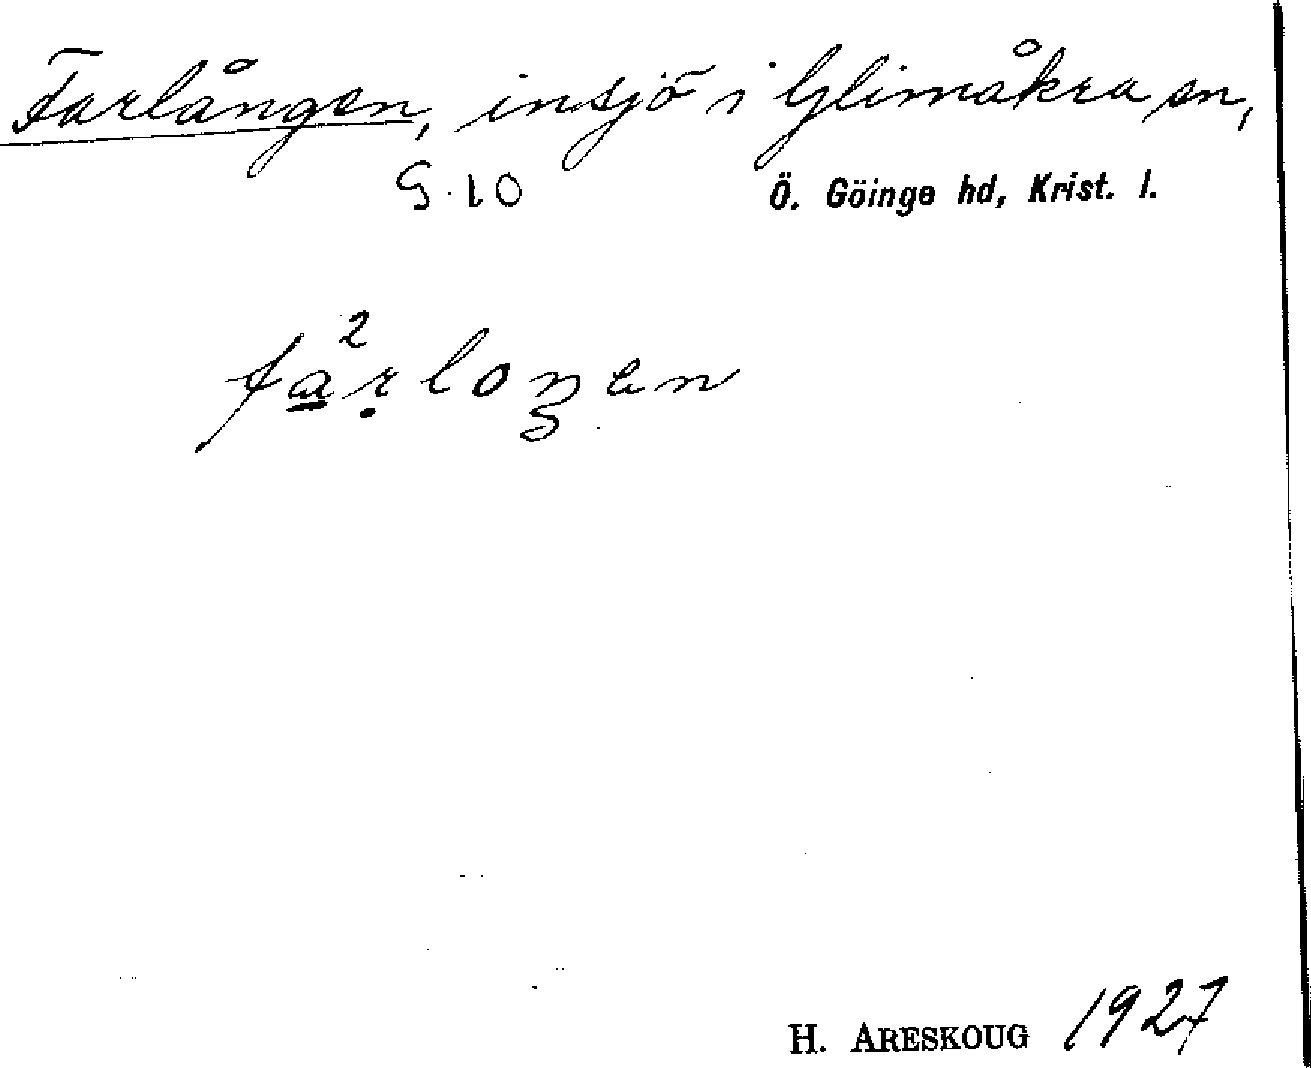 Farlången, insjö i Glimåkra sn,
S. 10 Ö. Göinge hd, Krist. l.
fa̲²ṛloŋen
H. ARESKOUG 1927